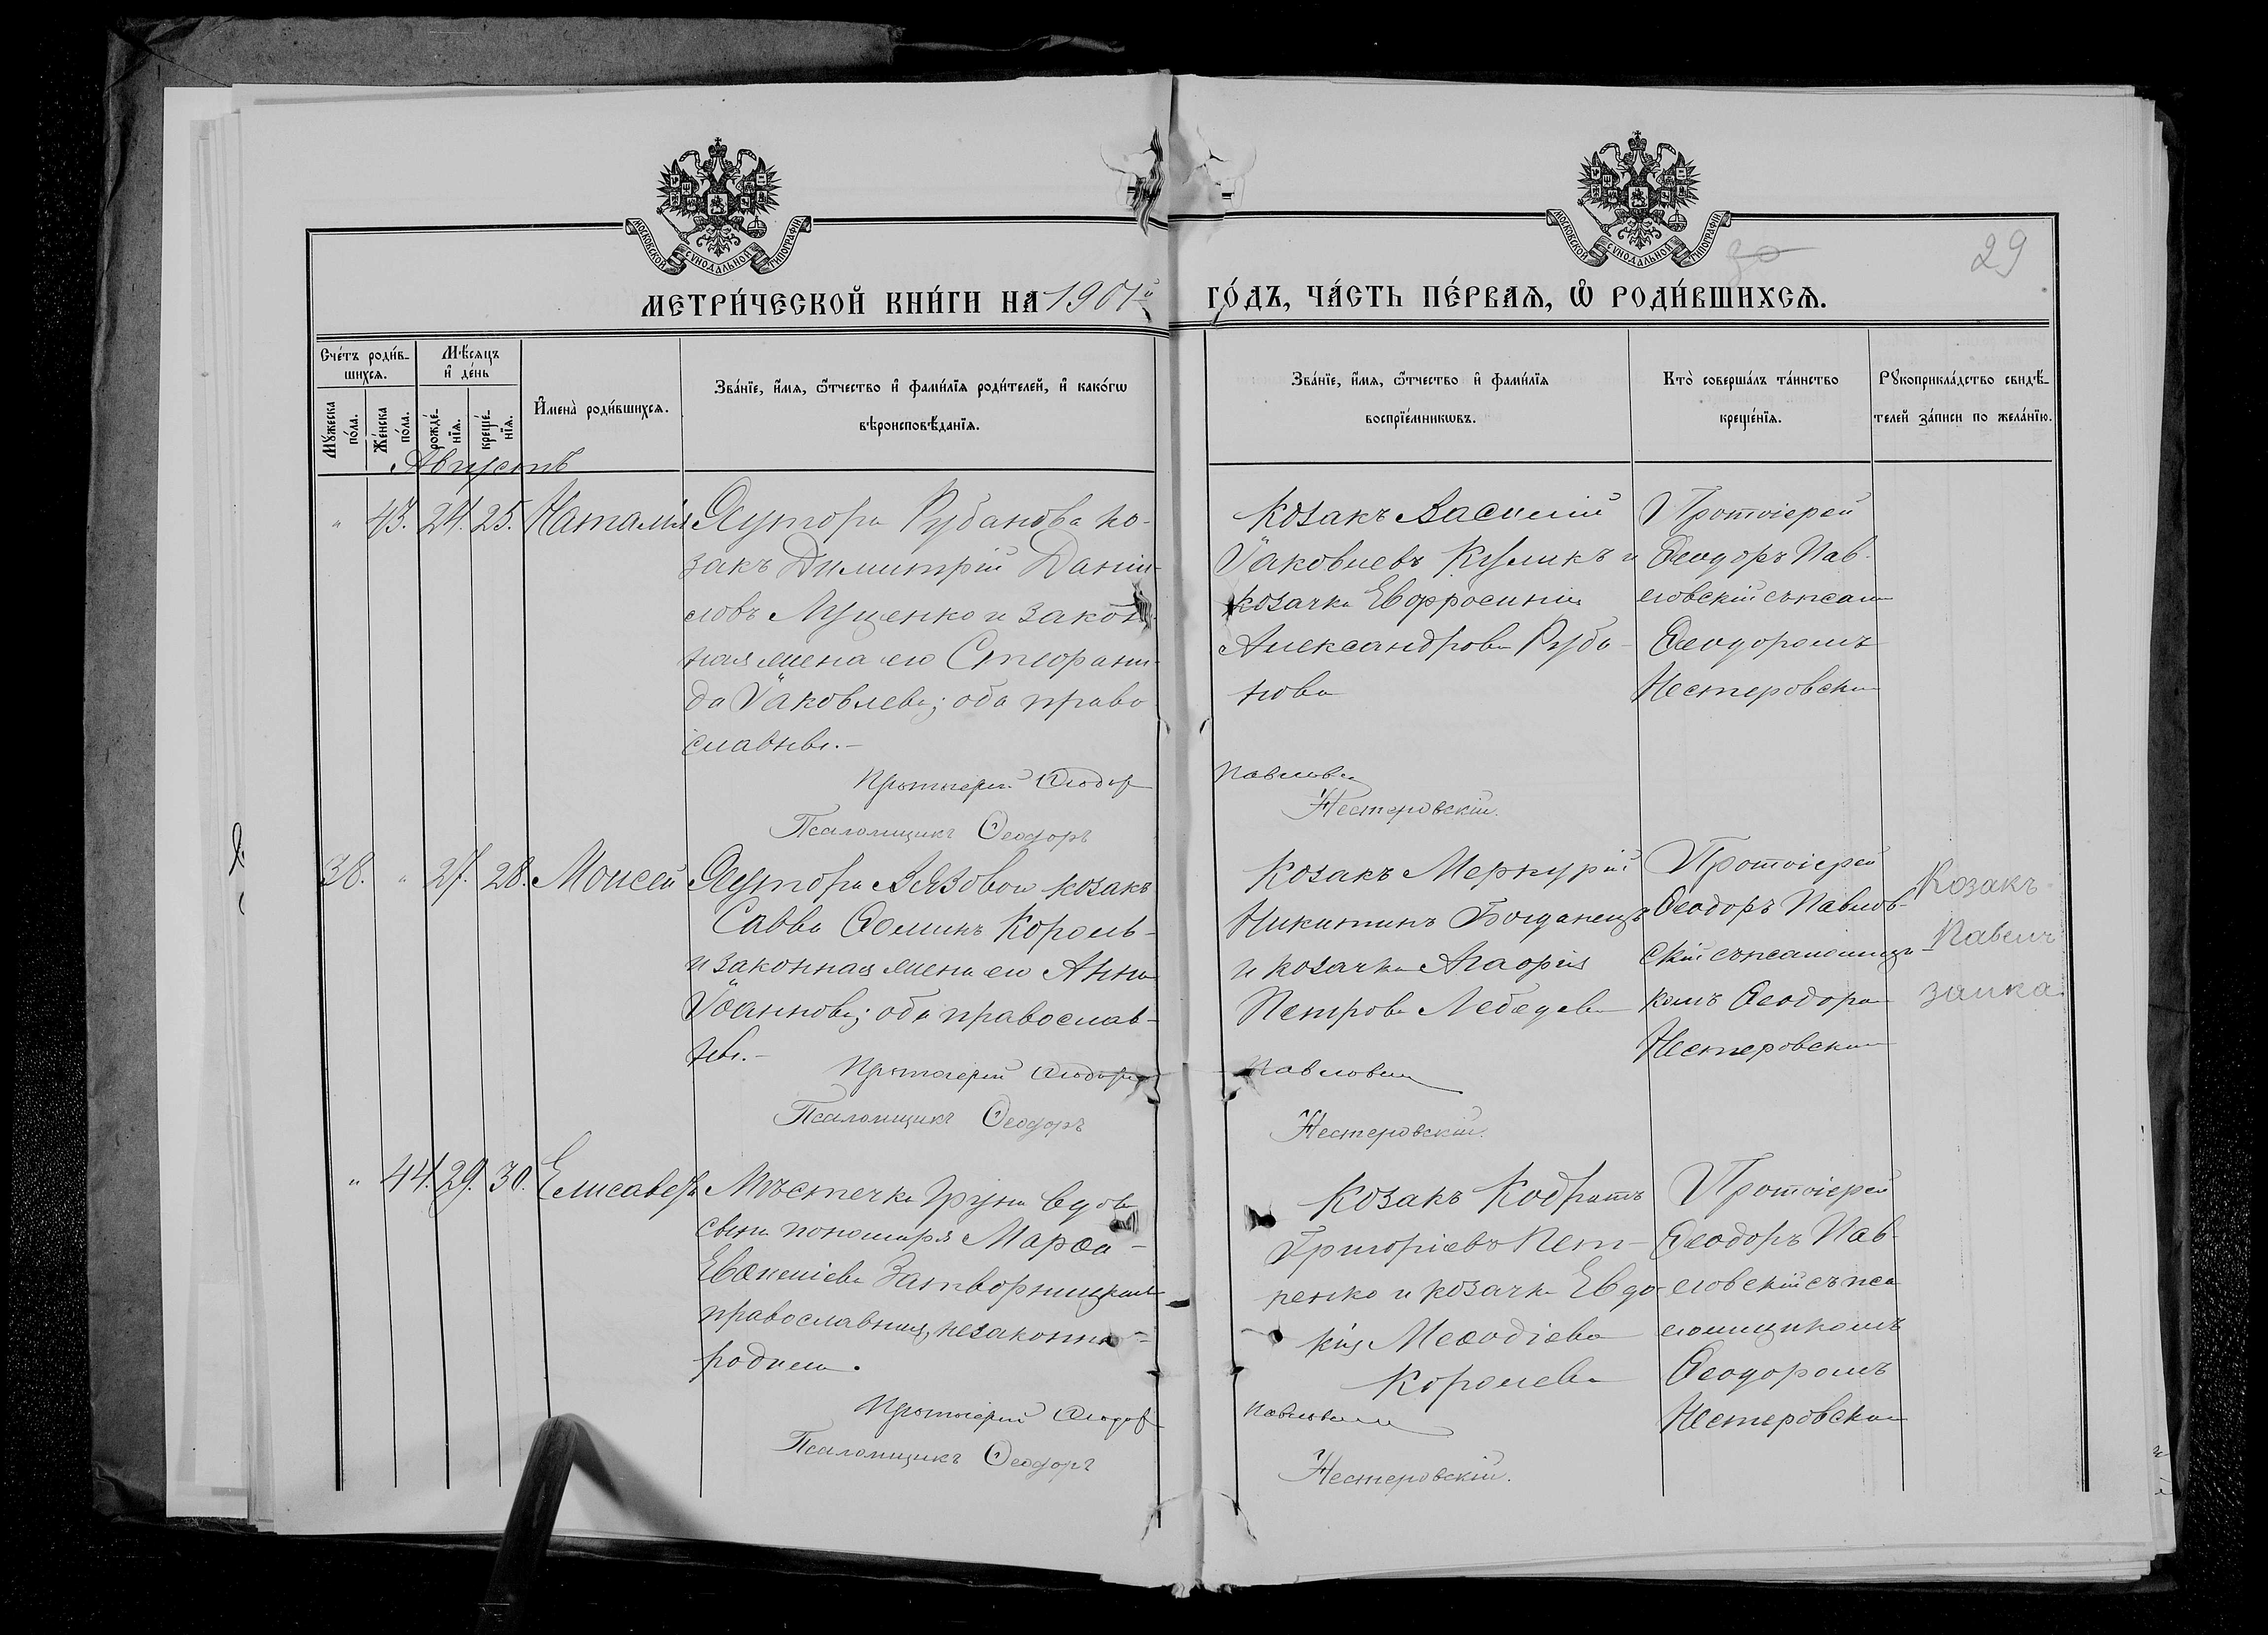 МОСКОВСКОЙ СУНОДАЛЬНОЙ ТИПОГРАФІИ
МОСКОВСКОЙ СУНОДАЛЬНОЙ ТИПОГРАФІИ
30
29
МЕТРИ́ЧЕСКОЙ КНИ́ГИ НА 1901й
ГО́ДЪ, ЧА́СТЬ ПЕ́РВАЯ, Ѡ РОДИ́ВШИХСЯ.
Сче́тъ роди́в-
шихся.
Мѣ́сяцъ
и де́нь
Му́жеска
по́ла.
Же́нска
по́ла.
рожде́-
нїя.
креще́-
нїя.
Имена̀ роди́вшихся.
Зва́нїе, и́мя, ѻ́тчество и фами́лїя роди́телей, и како́гѡ
вѣроисповѣ́данїя.
Зва́нїе, и́мя, ѻ́тчество и фами́лїя
воспрїе́мникѡвъ.
Кто̀ соверша́лъ та́инство
креще́нїя.
Рꙋкоприкла́дство свидѣ́-
телей за́писи по жела́нїю.
Августъ
" 43. 24. 25. Наталія
Хутора Рубанова ко-
закъ Димитрій Даніи-
ловъ Луценко и закон-
ная жена его Стефани-
да Іаковлева; оба право
славные.-
Протоіерей Ѳеодор
Псаломщикъ Ѳеодоръ
Козакъ Василій
Іаковлевъ Куликъ и
козачка Евфросинія
Александрова Руба-
нова
Павловскій
Нестеровскій.
Протоіерей
Ѳеодоръ Пав-
ловскій съ псал
Ѳеодоромъ
Нестеровским
38. " 27. 28. Моисей
Хутора Вязового козакъ
Савва Ѳоминъ Король-
и законная жена его Анна
Іоаннова; оба православ-
ные.-
Протоіерей Ѳеодоръ
Псаломщикъ Ѳеодоръ
Козакъ Меркурій
Никитинъ Богданецъ
и козачка Агафія
Петрова Лебедева
Павловскій
Нестеровскій.
Протоіерей
Ѳеодоръ Павлов-
скій съ псаломщи-
комъ Ѳеодором
Нестеровским
Козакъ
Павелъ
заика
" 44. 29. 30. Елисавета
Мѣстечка Груни вдова
сына пономаря Марѳа
Затворницкая
православная, незаконно-
родила.
Протоіерей Ѳеодор
Псаломщикъ Ѳеодоръ
Козакъ Кодратъ
Григоріевъ Пет-
ренко и козачка Евдо-
кія Меѳодіева
Королева
Павловскій
Нестеровскій.
Протоіерей
Ѳеодоръ Пав-
ловскій съ пса
ломщикомъ
Ѳеодоромъ
Нестеровским